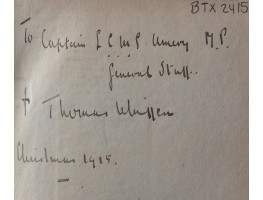 BTX 2415
To Captain L C M S Amery M.P.
General Staff.
Thomas
Christmas 1915.